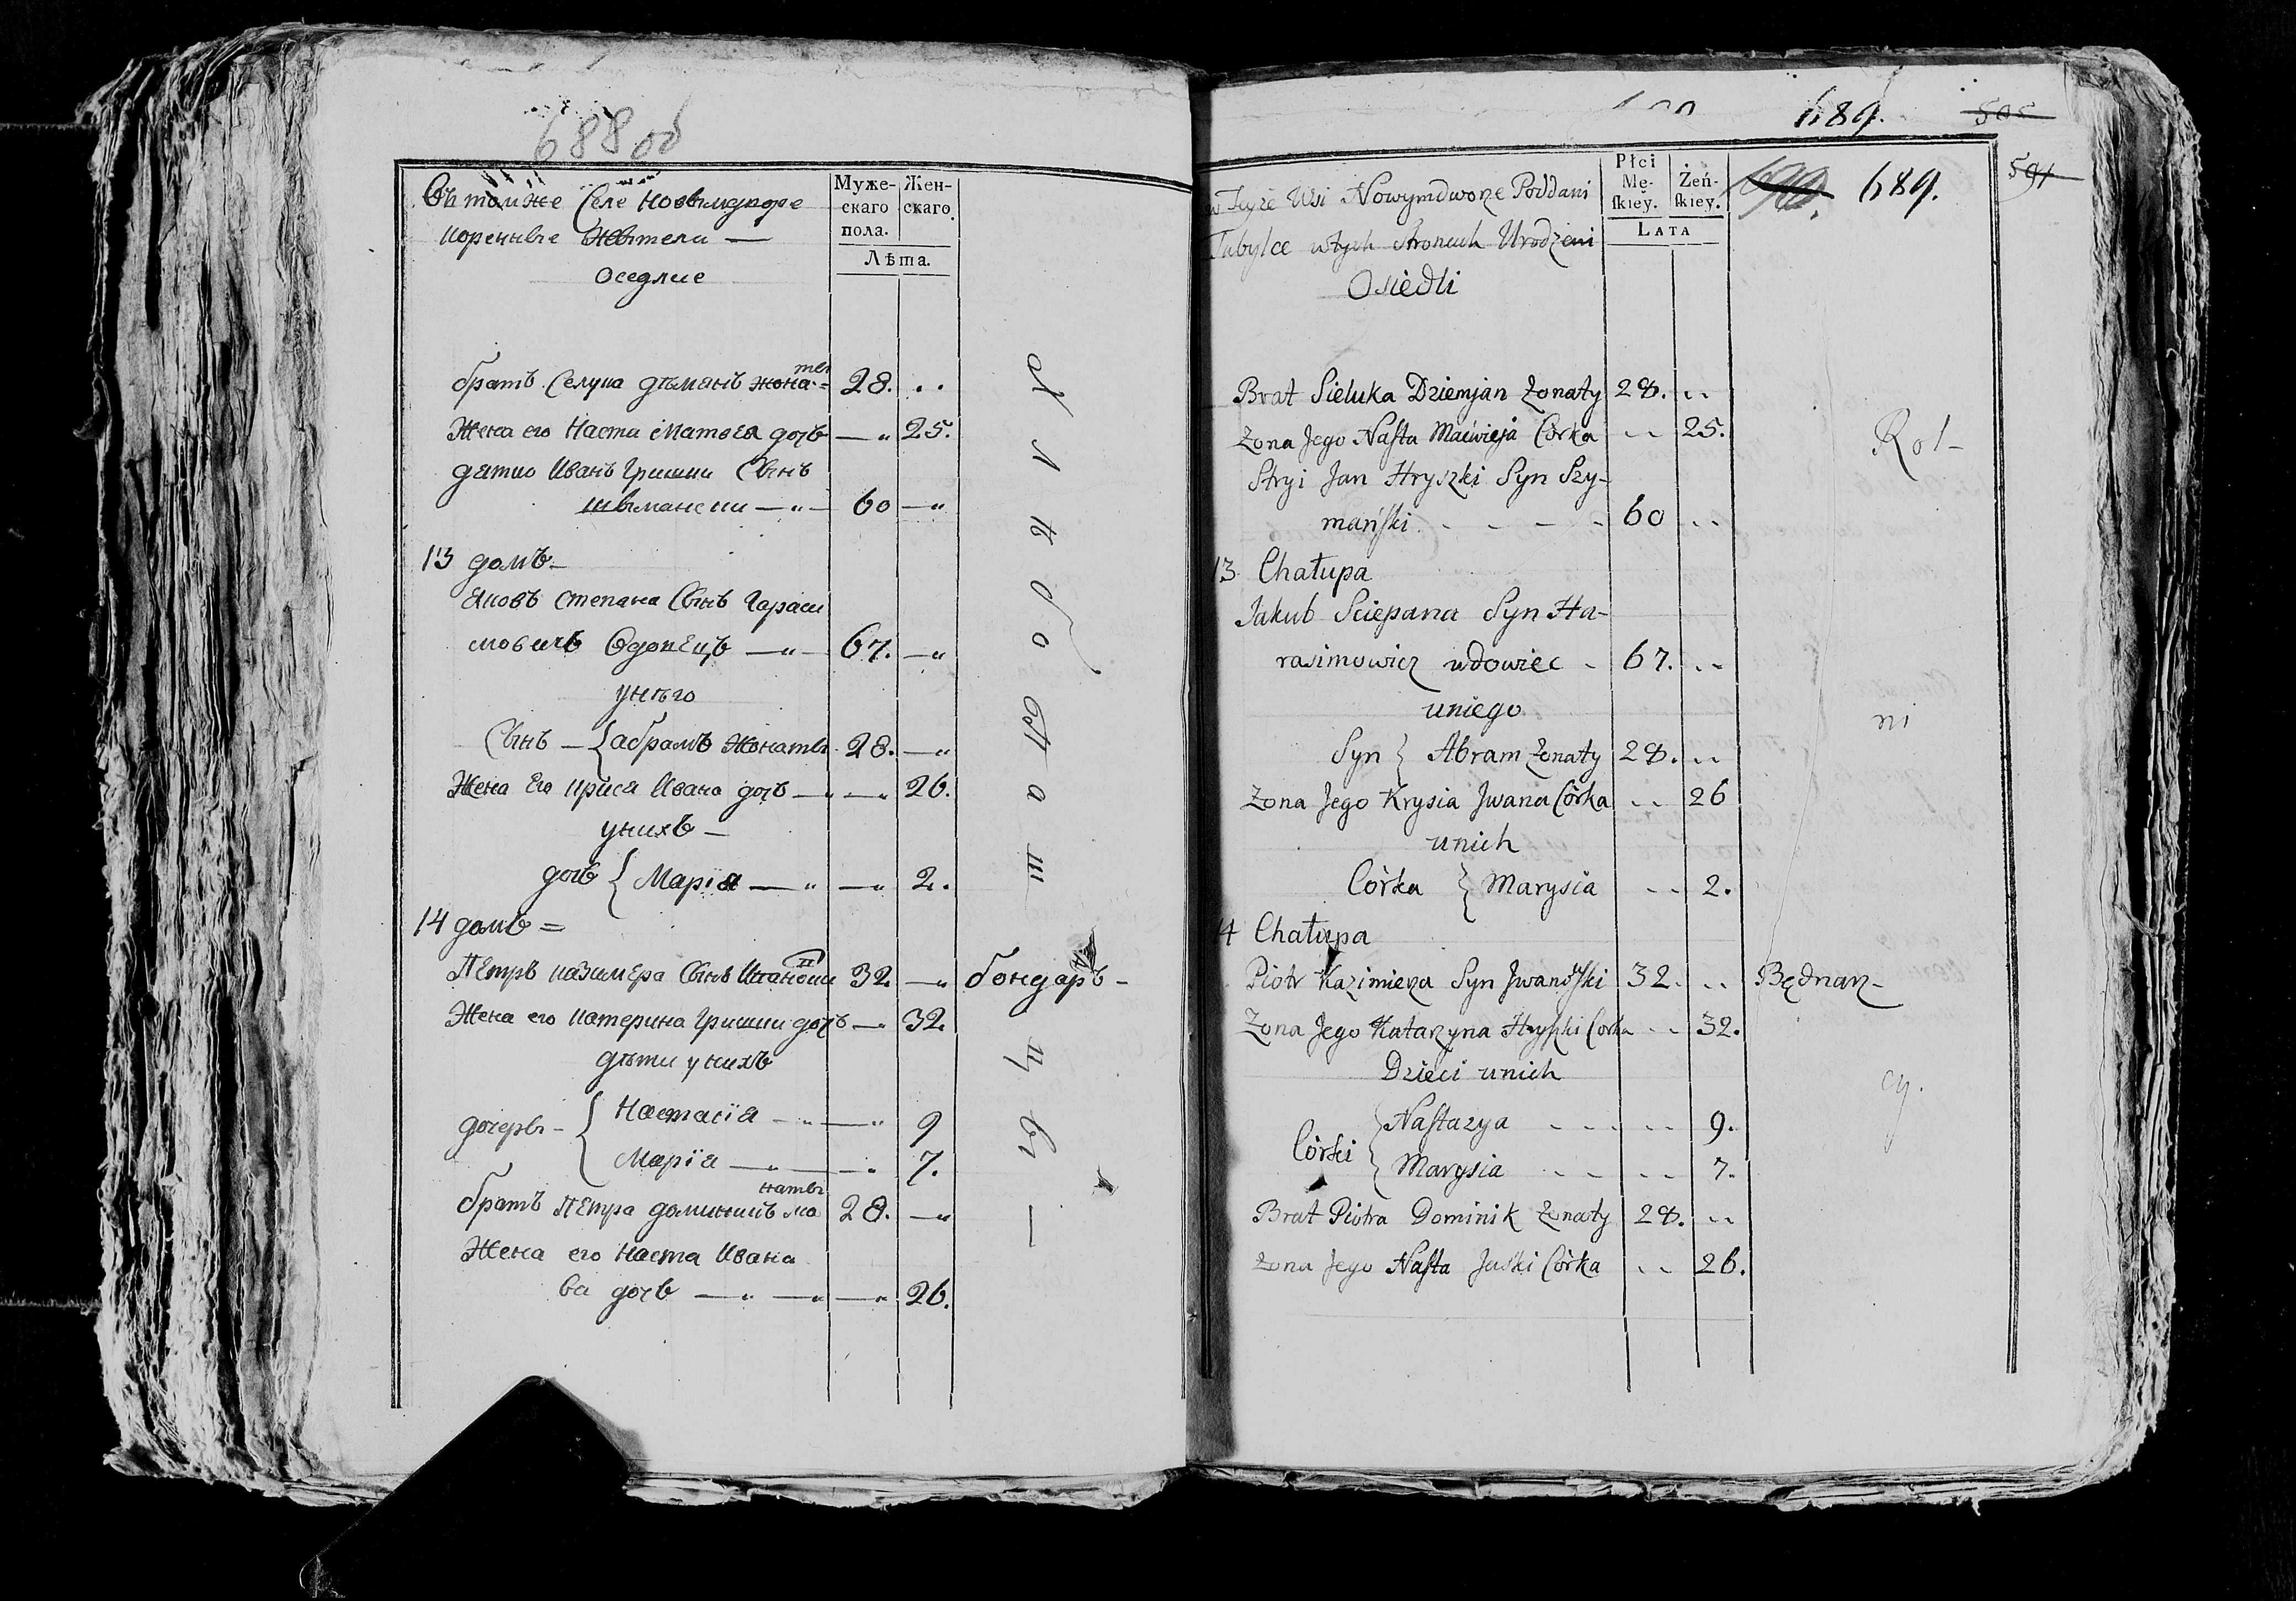 688 об
Въ томже Селе Новымдворе
коренные Жытели —
оседлие
Муже-
скаго
пола.
Жен-
скаго.
Лѣта.
братъ Селука дземянъ жона=ты 28. ..
Жена его Наста Матвея дочь —„ 25.
дятко Иванъ Гришки Сынъ
шымански —„— 60 —„
13 домъ —
Яковъ степана Сынъ Гараси
мовичъ Вдовецъ —„— 67. —„
унего
Сынъ — { абрамъ Жонаты 28. —„
Жена Его Крися Ивана дочь —„—„ 26.
унихъ —
дочь { Марiя —„ —„ 2.
14 домъ =
Петръ казимера Сынъ Иванови 32. —„ бондаръ —
Жена его катерина Гришки дочь —„ 32.
дѣти унихъ
дочеры — { Настасiя —„—„ 9
Марiя —„—„ 7.
братъ Петра доминикъ жонаты 28. —„
Жена его Наста Ивана
ва дочь —„ —„ —„ 26.
689. 505
w Teyże Wsi Nowymdworze Poddani
Tubylce wtych stronach Urodzeni
Osiedli
Płci
Mę-
skiey.
Żeń-
skiey.
LATA
690. 689. 591
Brat Sieluka Dziemjan żonaty 28. ..
Żona Jego Nasta Maćwieja Córka .. 25.
Stryi Jan Hryszki Syn Szy-
mański - - - - 60 ..
Rol-
13 Chałupa
Jakub Sciepana Syn Ha-
rasimowicz wdowiec - 67. ..
uniego
ni
Syn { Abram żonaty 28. ..
Żona Jego Krysia Jwana Córka .. 26
unich
Córka { Marysia .. 2.
14 Chałupa
Piotr Kazimierza Syn Jwanowski 32. .. Będnarz -
Żona Jego Katarzyna Hryszki Corka .. 32.
Dzieci unich
cy.
Córki { Nastazya - - - .. 9.
Marysia - - .. 7.
Brat Piotra Dominik Żonaty 28. ..
Żona Jego Nasta Juski Córka .. 26.